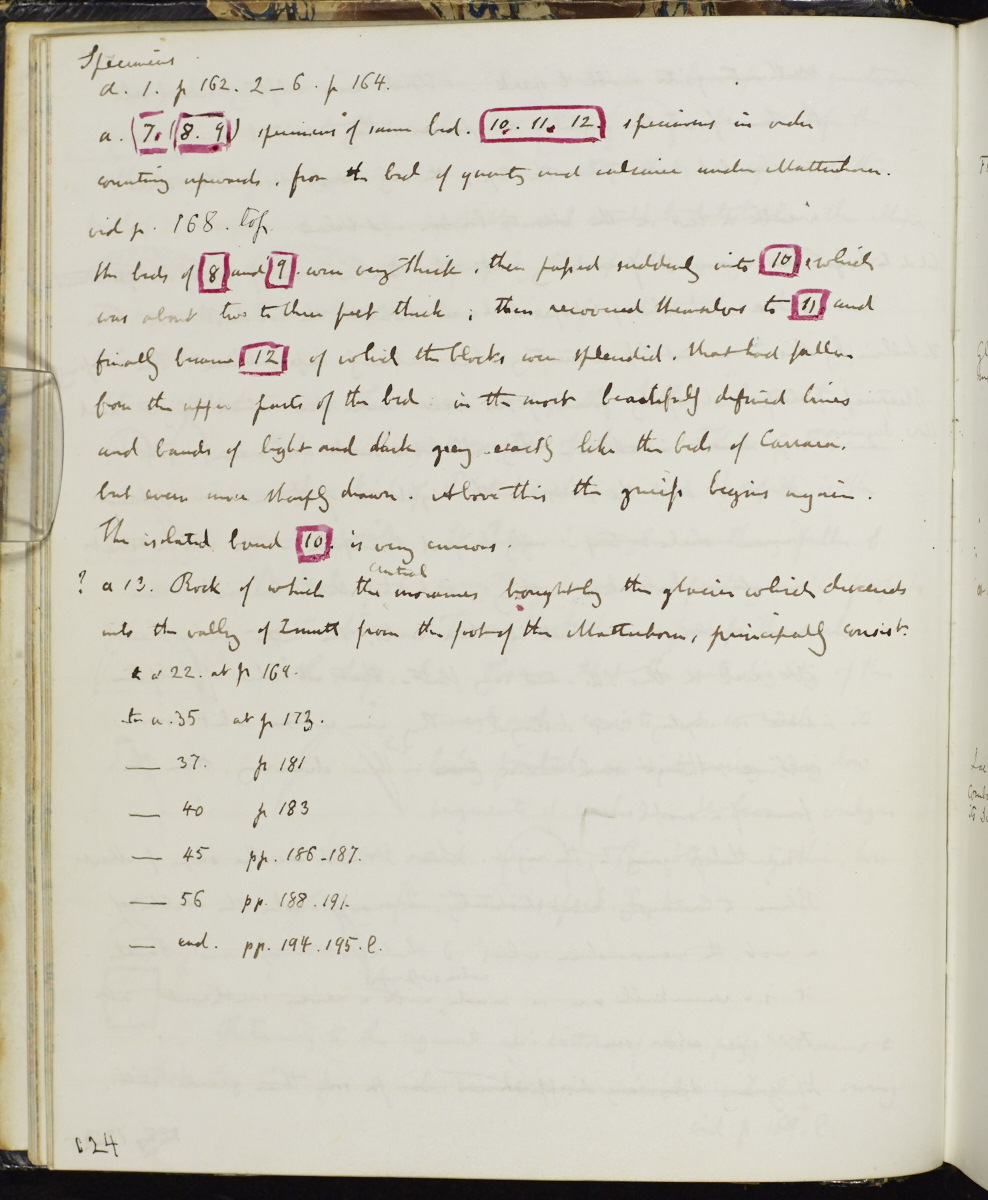 Specimens
a. 1. p 162. 2 – 6. p 164.
a. (7. (8. 9) specimens of same bed. 10. 11. 12. specimens in order
counting upwards, from the bed of quartz and calcaire under Matterhorn.
vid p. 168. top.
the beds of 8 and 9. were very thick, then passed suddenly into 10 which
was about two to three feet thick; then recovered themselves to 11 and
finally became 12 of which the blocks were splendid, that had fallen
from the upper parts of the bed in the most beautifully defined lines
and bands of light and dark grey exactly like the beds of Carrara.
but even more sharply drawn. Above this the gneiss begins again.
The isolated band 10. is very curious.
central
? a 13. Rock of which the moraines brought by the glacier which descends
into the valley of Zmutt from the foot of the Matterhorn, principally consist.
a 22. at p 169.
to a. 35 at p 173.
— 37. p 181
— 40 p 183
— 45 pp. 186-187.
— 56 pp. 188. 191.
— end. pp. 194. 195. l.
24